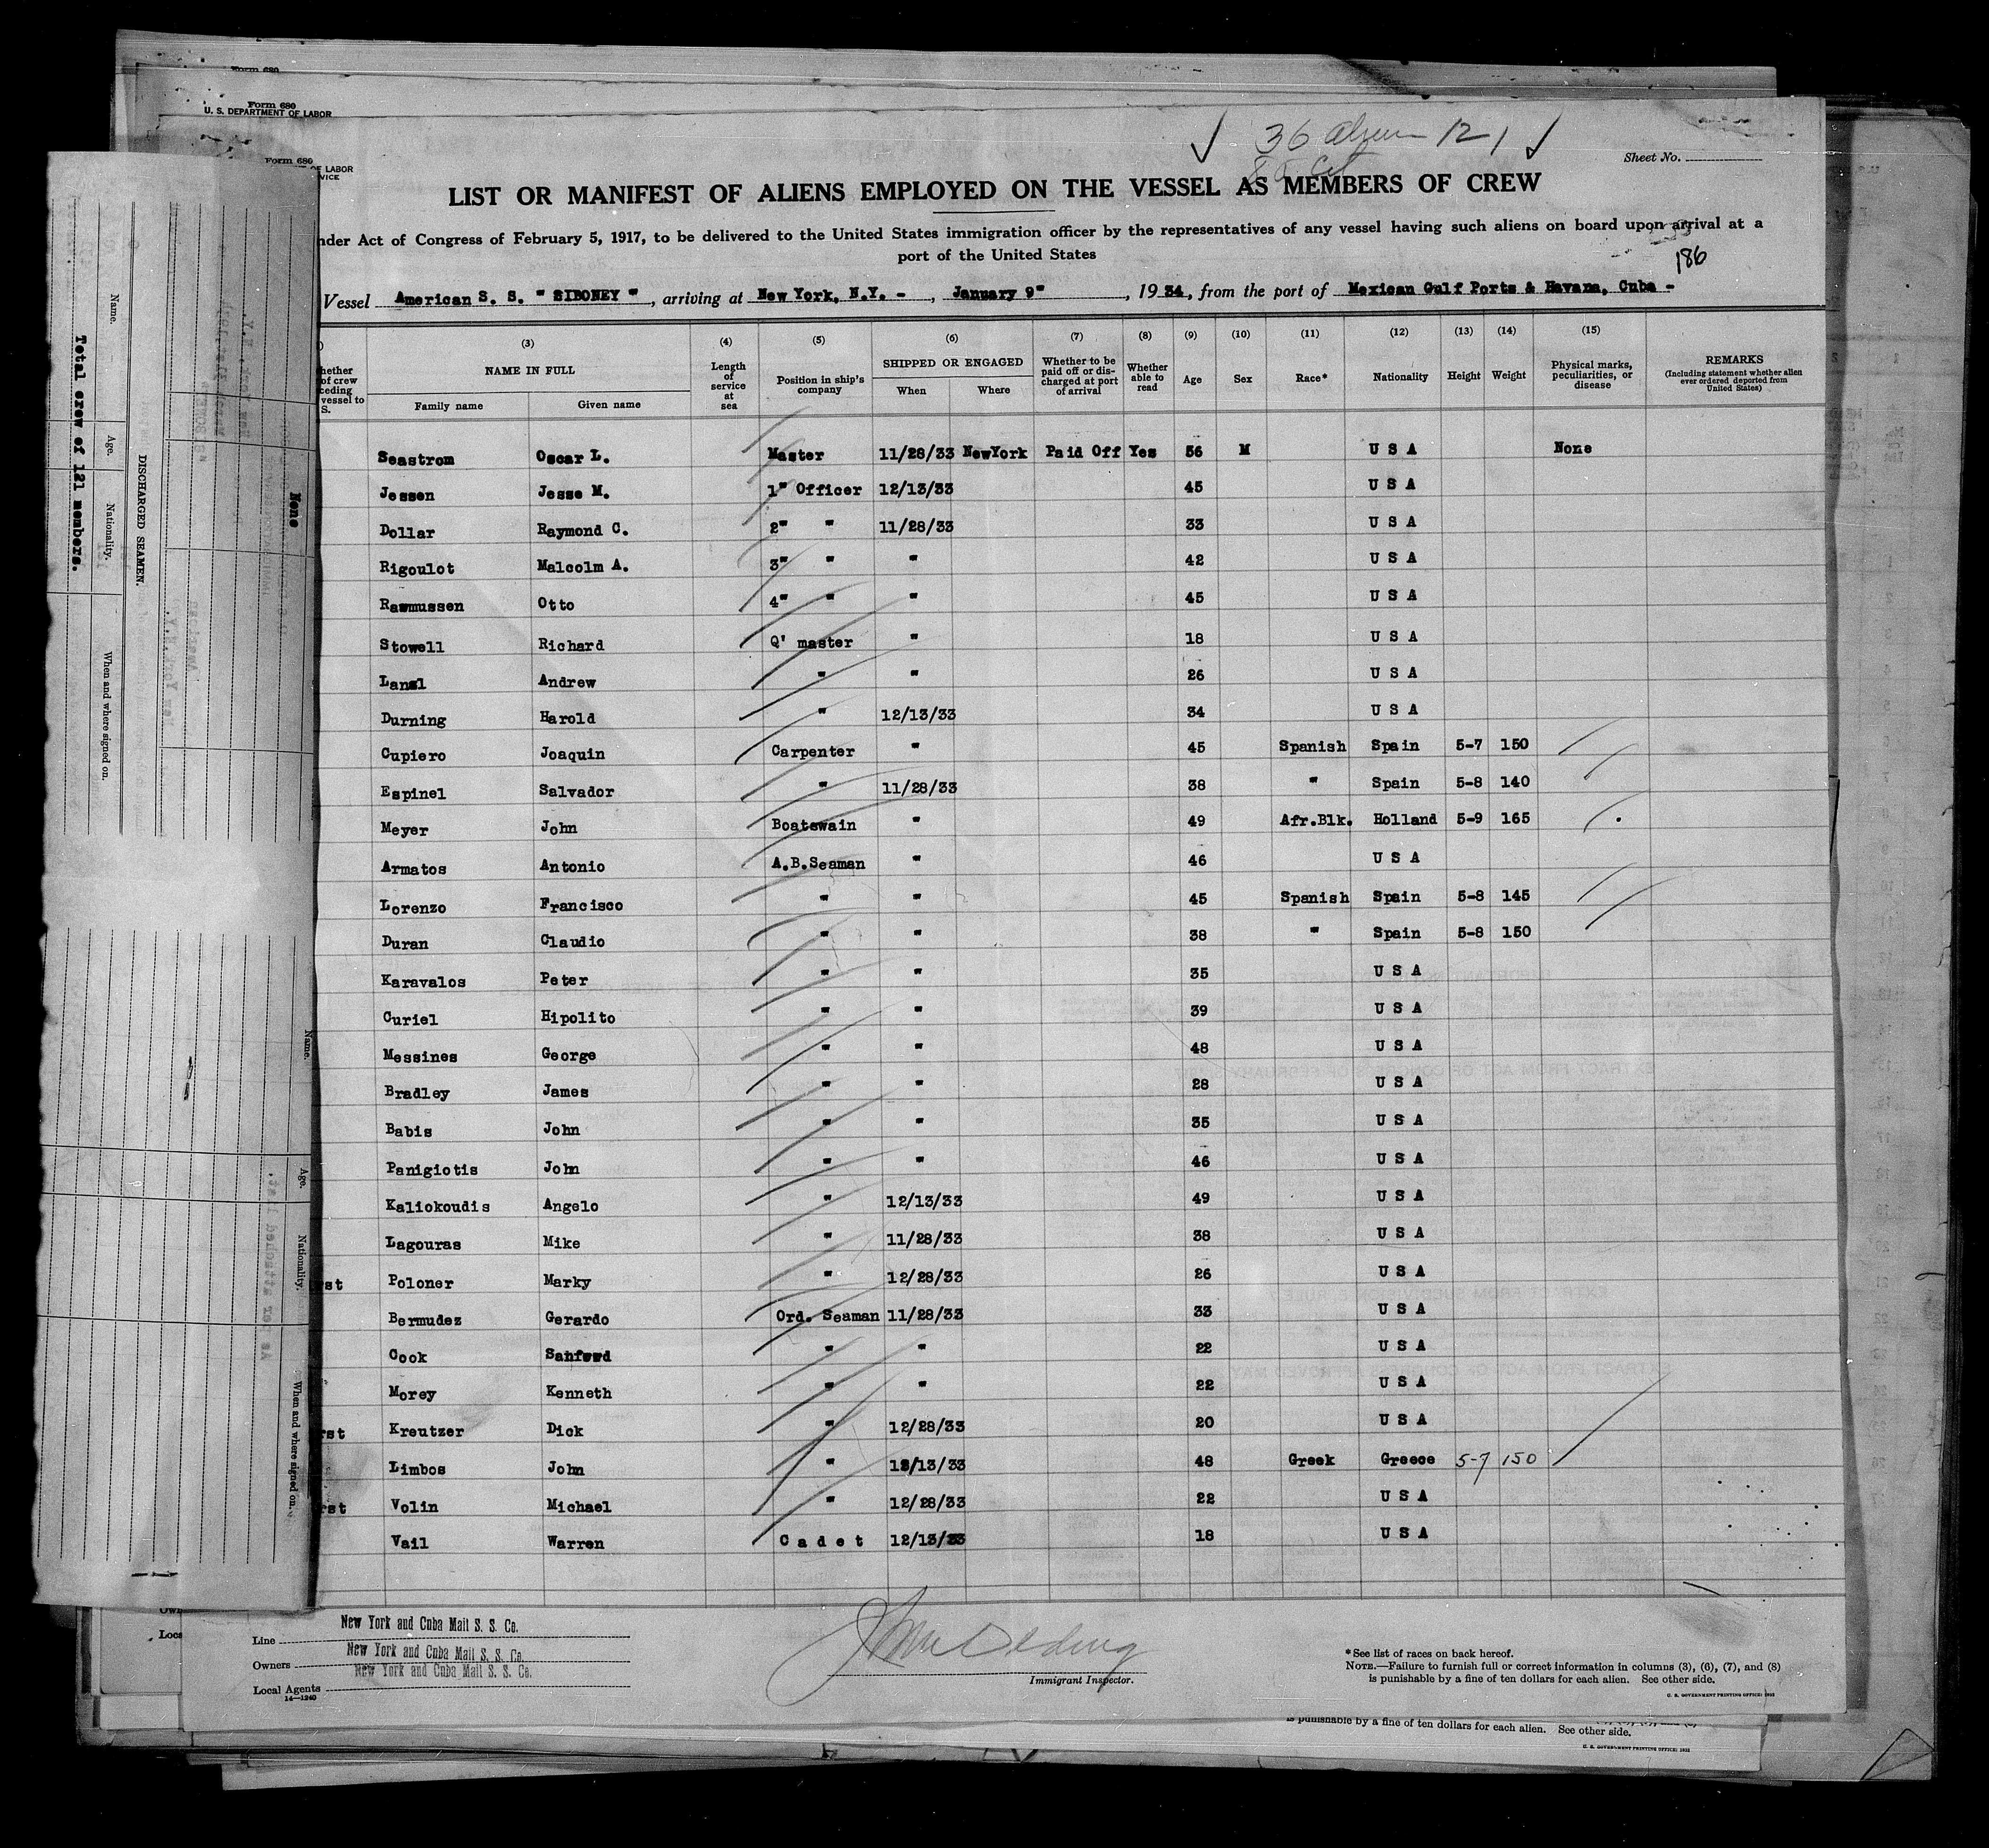 Form 680
Form 680
U. S. DEPARTMENT OF LABOR
Form 680
OF LABOR
VICE
36 12 1
Sheet No.
LIST OR MANIFEST OF ALIENS EMPLOYED ON THE VESSEL AS MEMBERS OF CREW
nder Act of Congress of February 5, 1917, to be delivered to the United States immigration officer by the representatives of any vessel having such aliens on board upon arrival at a
port of the United States
186
Vessel American S. S. " SIBONEY ", arriving at New York, N.Y. - , January 9" , 1934, from the port of Mexican Gulf Ports & Havana, Cuba -
(3) (4) (5) (6) (7) (8) (9) (10) (11) (12) (13) (14) (15)
hether of crew ceding vessel to S.
NAME IN FULL Family name Given name
Length of service at sea
Position in ship's company
SHIPPED OR ENGAGED When Where
Whether to be paid off or discharged at port of arrival
Whether able to read
Age Sex Race* Nationality Height Weight
Physical marks, peculiarities, or disease
REMARKS (Including statement whether alien ever ordered deported from United States)
Seastrom Oscar L. Master 11/28/33 NewYork Paid Off Yes 56 M U S A None
Jessen Jesse M. 1" Officer 12/13/33 45 U S A
Dollar Raymond C. 2" " 11/28/33 33 U S A
Rigoulot Malcolm A. 3" " " 42 U S A
Rasmussen Otto 4" " " 45 U S A
Stowell Richard Q' master " 18 U S A
Andrew " " 26 U S A
Durning Harold " 12/13/33 34 U S A
Cupiero Joaquin Carpenter " 45 Spanish Spain 5-7 150
Espinel Salvador " 11/28/33 38 " Spain 5-8 140
Meyer John Boatswain " 49 Afr.Blk. Holland 5-9 165
Armatos Antonio A.B.Seaman " 46 U S A
Lorenzo Francisco " " 45 Spanish Spain 5-8 145
Duran Claudio " " 38 " Spain 5-8 150
Karavalos Peter " " 35 U S A
Curiel Hipolito " " 39 U S A
Messines George " " 48 U S A
Bradley James " " 28 U S A
Babis John " " 35 U S A
Panigiotis John " " 46 U S A
Kaliokoudis Angelo " 12/13/33 49 U S A
Lagouras Mike " 11/28/33 38 U S A
rst Poloner Marky " 12/28/33 26 U S A
Bermudez Gerardo Ord. Seaman 11/28/33 33 U S A
Cook " " 22 U S A
Morey Kenneth " " 22 U S A
rst Kreutzer Dick " 12/28/33 20 U S A
Limbos John " 12/13/33 48 Greek Greece 5-7 150
rst Volin Michael " 12/28/33 22 U S A
Vail Warren Cadet 12/13/33 18 U S A
Line New York and Cuba Mail S. S. Co.
Owners New York and Cuba Mail S. S. Co.
Local Agents New York and Cuba Mail S. S. Co.
14—1240
Immigrant Inspector.
*See list of races on back hereof.
NOTE.—Failure to furnish full or correct information in columns (3), (6), (7), and (8)
is punishable by a fine of ten dollars for each alien. See other side.
U. S. GOVERNMENT PRINTING OFFICE: 1932
is punishable by a fine of ten dollars for each alien. See other side.
U. S. GOVERNMENT PRINTING OFFICE: 1932
Total crew of 121 members.
Name. Age. Nationality. When and where signed on.
DISCHARGED SEAMEN.
None
Name. Age. Nationality. When and where signed on.
As per attached list.